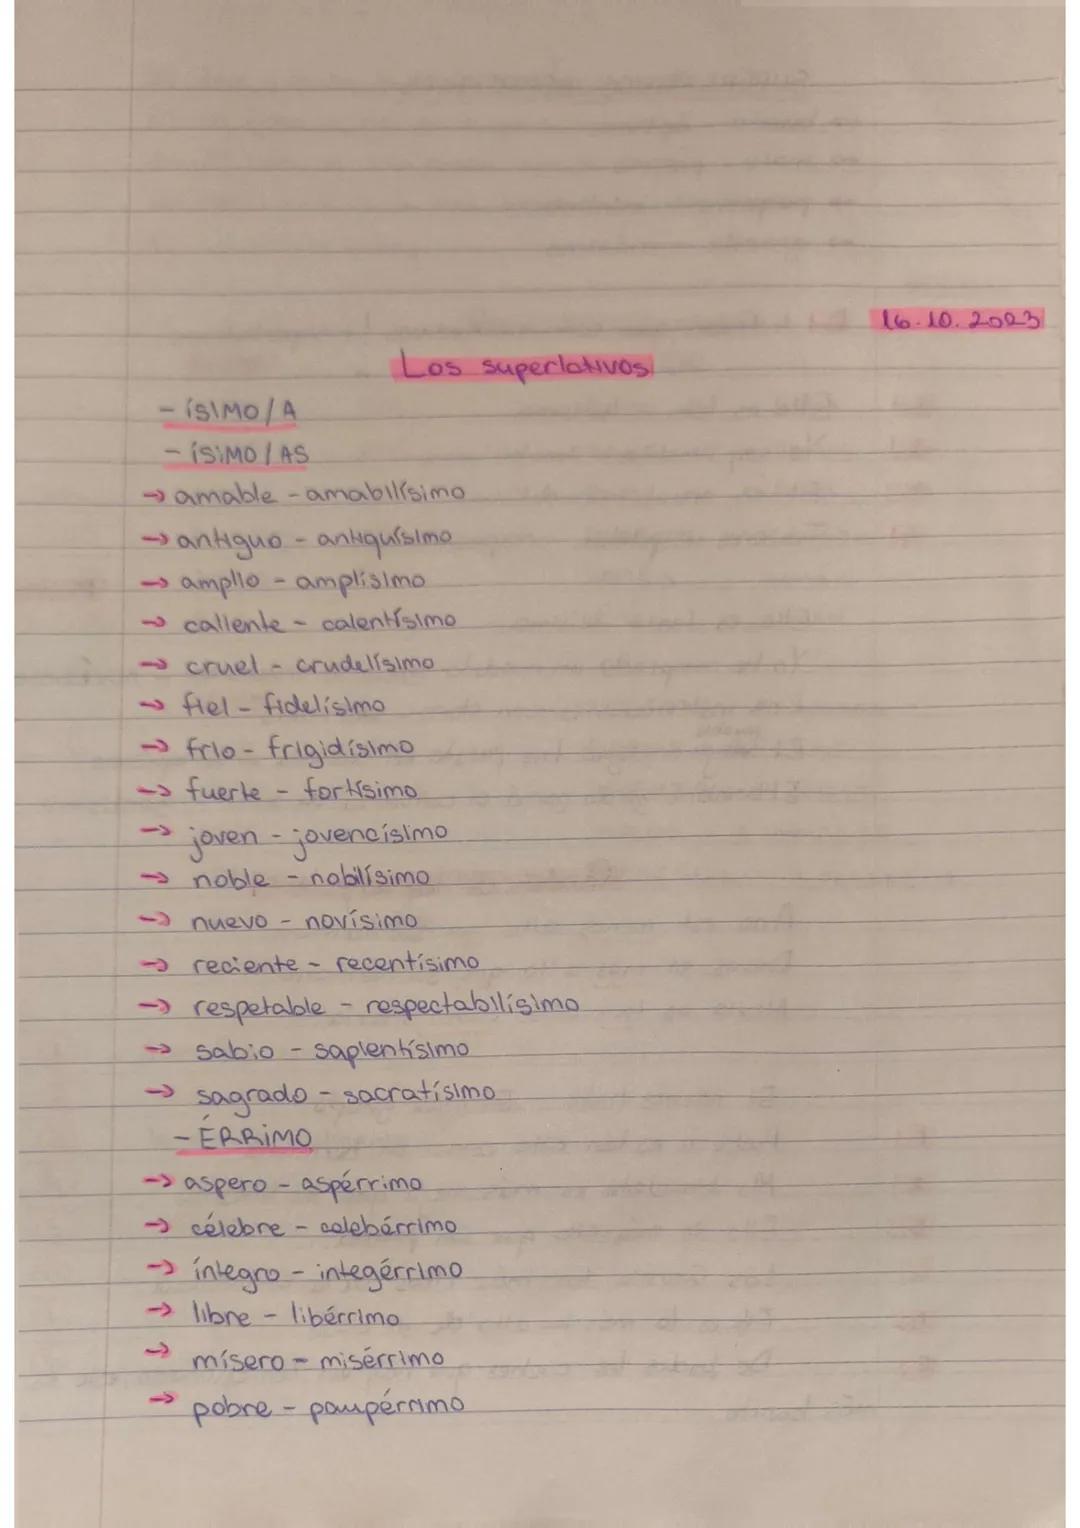 16.10.2023
Los superlativos
- ÍSIMO/A
- ÍSIMO/AS
→ amable - amabilísimo
→ antiguo - antiquísimo
→ amplio - amplísimo
→ caliente - calentísimo
→ cruel - crudelísimo
→ fiel - fidelísimo
→ frio - frigidísimo
→ fuerte - fortísimo
→ joven - jovencísimo
→ noble - nobilísimo
→ nuevo - novísimo
→ reciente - recentísimo
→ respetable - respectabilísimo
→ sabio - sapientísimo
→ sagrado - sacratísimo
- ÉRRIMO
→ aspero - aspérrimo
→ célebre - celebérrimo
→ íntegro - integérrimo
→ libre - libérrimo
→ mísero - misérrimo
→ pobre - paupérrimo